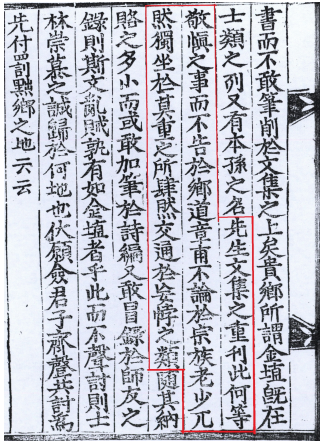 書而不敢筆削於文集之上矣貴鄉所謂金埴旣在
士類之列又有本孫之名先生文集之重刊此何等
敬愼之事而不告於鄉道章甫不論於宗族老少兀
然獨坐於莫重之所肆然交通於妄悖之類隨其納
賂之多小而或敢加筆於詩編又敢冒錄於師友之
錄則斯文亂賊孰有如金埴者乎此而不聲討則士
林崇慕之誠歸於何地也伏願僉君子齊聲共討爲
先付罰黜鄉之地云云